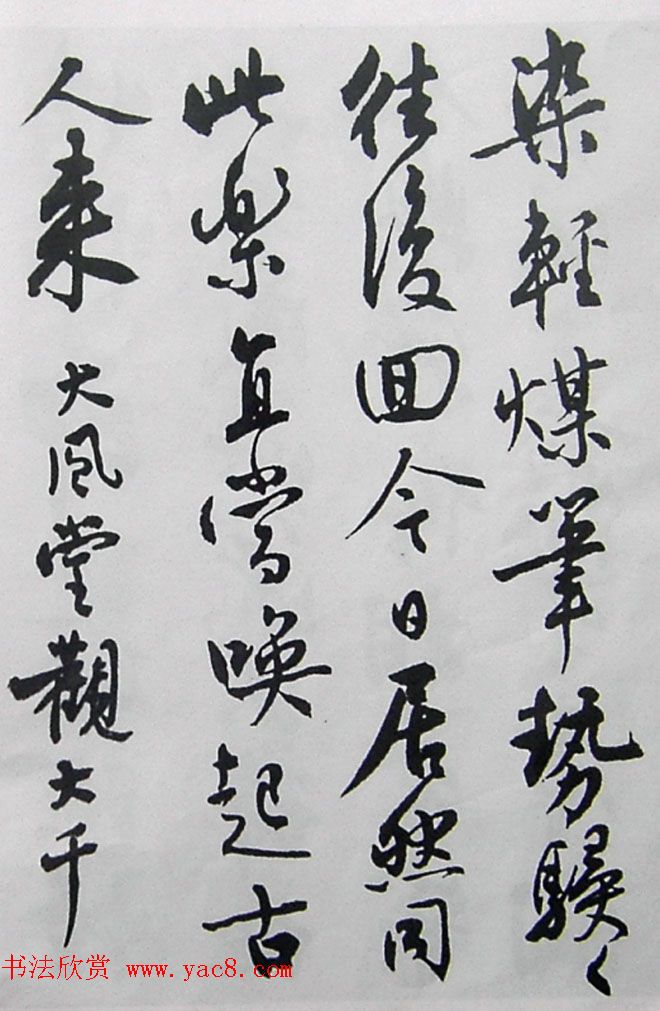 染輕煤筆勢駸々
往復回今日居然同
此樂直當喚起古
人来 大風堂觀大千
书法欣赏 www.yac8.com